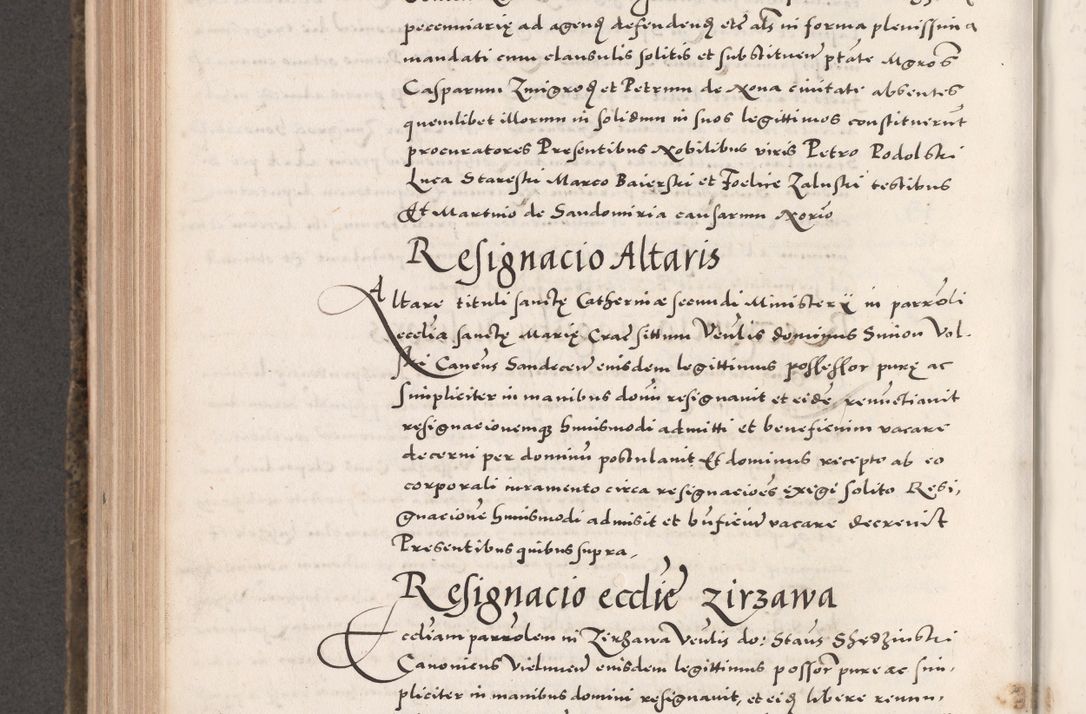 pecuniarię ad agenđ defendenđ etc̄ als̄ in forma plenissima
mandati cum clausulis solitis et substituen̄ ptāte Mgros̄
Casparum Zmigrođ et Petrum de Nova civitate absentes
quemlibet illorum in solidum in suos legittimos constituerūt
procuratores Presentibus Nobilibus viris Petro Podolski
Luca Stareski Marco Baierski et Foelice Zaluski testibus
Et Martino de Sandomiria causarum Norio
Resignacio Altaris
Altare tituli sanctę Catherinæ secundi Ministerij in parrōli
ecclīa sanctę Marię Crac̄ sittum Venl̄is dominus Simon Vol-
ski Canc̄us Sandecen̄ eiusdem legittimus possessor purę ac
simpliciter in manibus domī resignavit et eidē renunctiavit
resignacionemq; huiusmodi admitti et beneficium vacare
decerni per dominū postulavit Et dominus recepto ab eo
corporali iuramento circa resignacioēs exigi solito Resi,
gnacionē huiusmodi admisit et bn̄ficiū vacare decrevit
Presentibus quibus supra,
Resignacio eccliē zirzawa
Eccliam parrolem in Zirzawa Venl̄is do: Staus̄ Skedzinski
Canonicus Vielunen̄ eiusdem legittimus possor̄ pure ac sim,
pliciter in manibus domini resignavit, et eiđ libere renun,